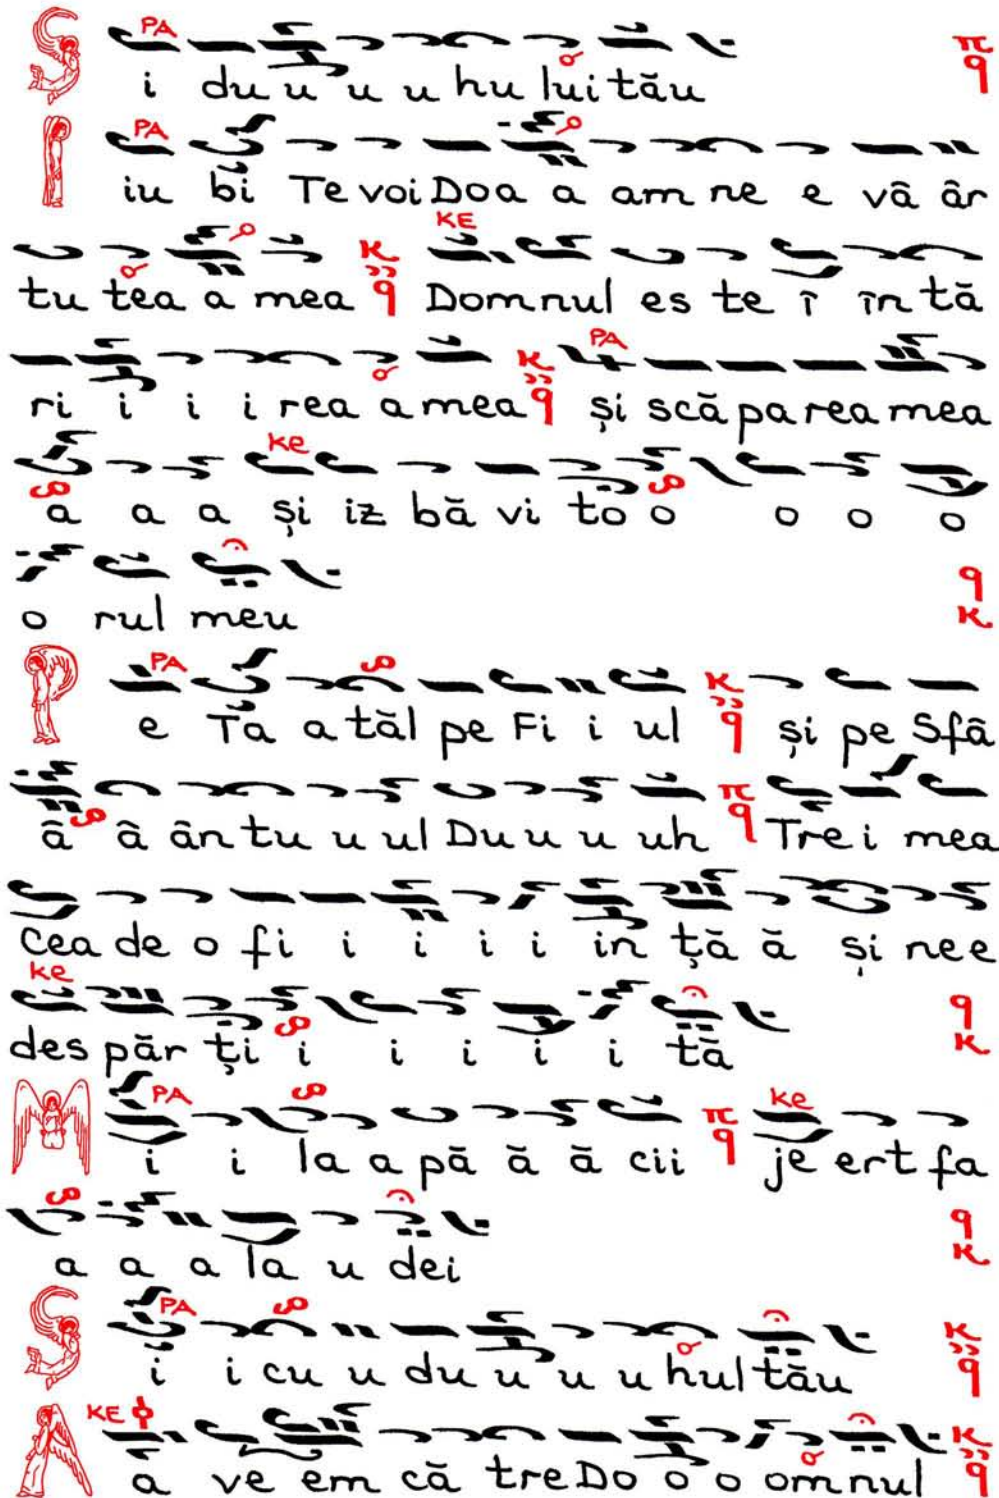 PA π q
S i du u u u hu lui tău
PA
I iu bi Te voi Doa a am ne e vâ âr
KE
tu tea a mea κ q Domnul es te î în tă
PA
ri i i i rea a mea κ q și scă pa rea mea
ke
a a a și iz bă vi to o o o o
o rul meu q κ
PA
P e Ta a tăl pe Fi i ul κ q și pe Sfâ
â â ân tu u ul Du u u uh π q Tre i mea
Cea de o fi i i i i in ță ă și ne e
ke
des păr ți i i i i i tă q κ
PA ke
M i i la a pă ă ă cii π q je ert fa
a a a la u dei q κ
PA
S i i cu u du u u u hul tău κ q
KE ϕ
A a ve em că tre Do o o om nul κ q